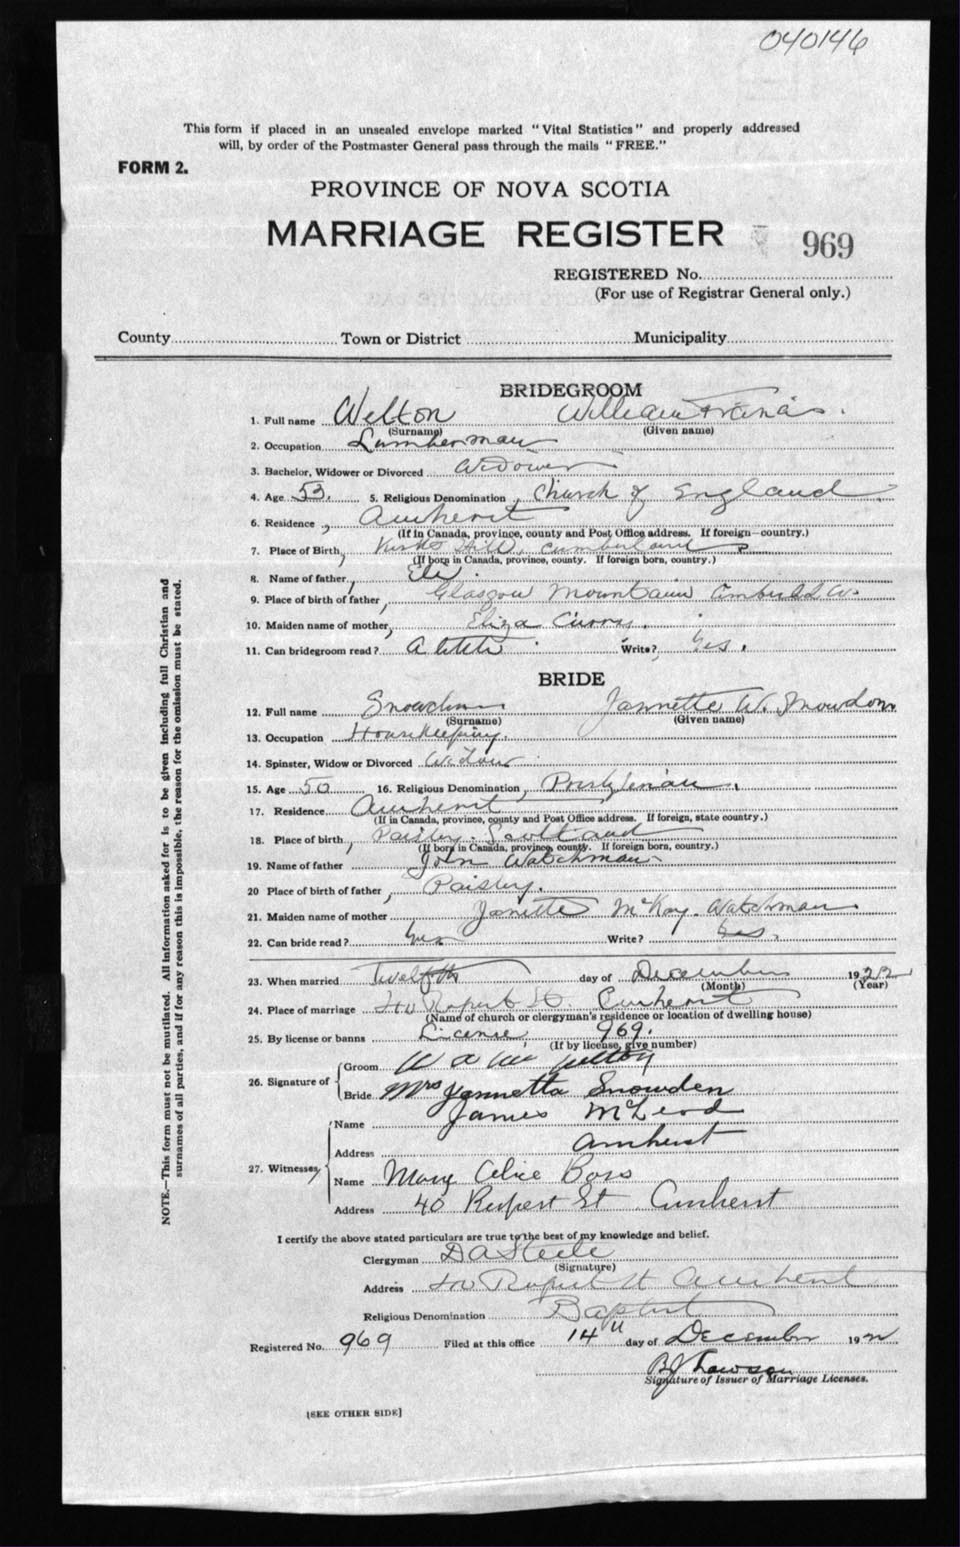 040146
This form if placed in an unsealed envelope marked "Vital Statistics" and properly addressed
will, by order of the Postmaster General pass through the mails "FREE."
FORM 2.
PROVINCE OF NOVA SCOTIA
MARRIAGE REGISTER 969
REGISTERED No.
(For use of Registrar General only.)
County Town or District Municipality
BRIDEGROOM
1. Full name Welton William Francis.
(Surname) (Given name)
2. Occupation Lumberman
3. Bachelor, Widower or Divorced Widower
4. Age 53. 5. Religious Denomination, Church of England
6. Residence, Amherst
(If in Canada, province, county and Post Office address. If foreign—country.)
7. Place of Birth, Hill, Cumberland
(If born in Canada, province, county. If foreign born, country.)
8. Name of father,
9. Place of birth of father, Glasgow Mountain
10. Maiden name of mother, Eliza
11. Can bridegroom read? A little Write? Yes.
BRIDE
12. Full name Snowdon Jannette W. Snowdon
(Surname) (Given name)
13. Occupation Housekeeping.
14. Spinster, Widow or Divorced Widow
15. Age 50 16. Religious Denomination, Presbyterian.
17. Residence Amherst
(If in Canada, province, county and Post Office address. If foreign, state country.)
18. Place of birth, Paisley. Scotland
(If born in Canada, province, county. If foreign born, country.)
19. Name of father John Watchman
20 Place of birth of father, Paisley.
21. Maiden name of mother Janette McKay. Watchman
22. Can bride read? Yes Write? Yes.
23. When married Twelfth day of December 1922
(Month) (Year)
24. Place of marriage 40 Rupert St. Amherst
(Name of church or clergyman's residence or location of dwelling house)
25. By license or banns License, 969.
(If by license, give number)
26. Signature of Groom Welton
Bride Mrs Jannetta Snowden
27. Witnesses, Name James McLeod
Address Amherst
Name Mary Alice Boss
Address 40 Rupert St Amherst
I certify the above stated particulars are true to the best of my knowledge and belief.
Clergyman D A Steele
(Signature)
Address 40 Rupert St Amherst
Religious Denomination Baptist
Registered No. 969 Filed at this office 14th day of December 1922
Lawson
Signature of Issuer of Marriage Licenses.
[SEE OTHER SIDE]
NOTE.—This form must not be mutilated. All information asked for is to be given including full Christian and
surnames of all parties, and if for any reason this is impossible, the reason for the omission must be stated.